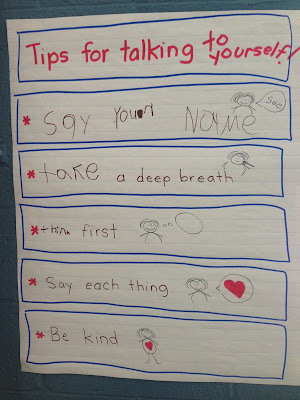 Tips for talking to
yourself!
* Say your Name Sue
* take a deep breath
* think first
* Say each thing
* Be kind